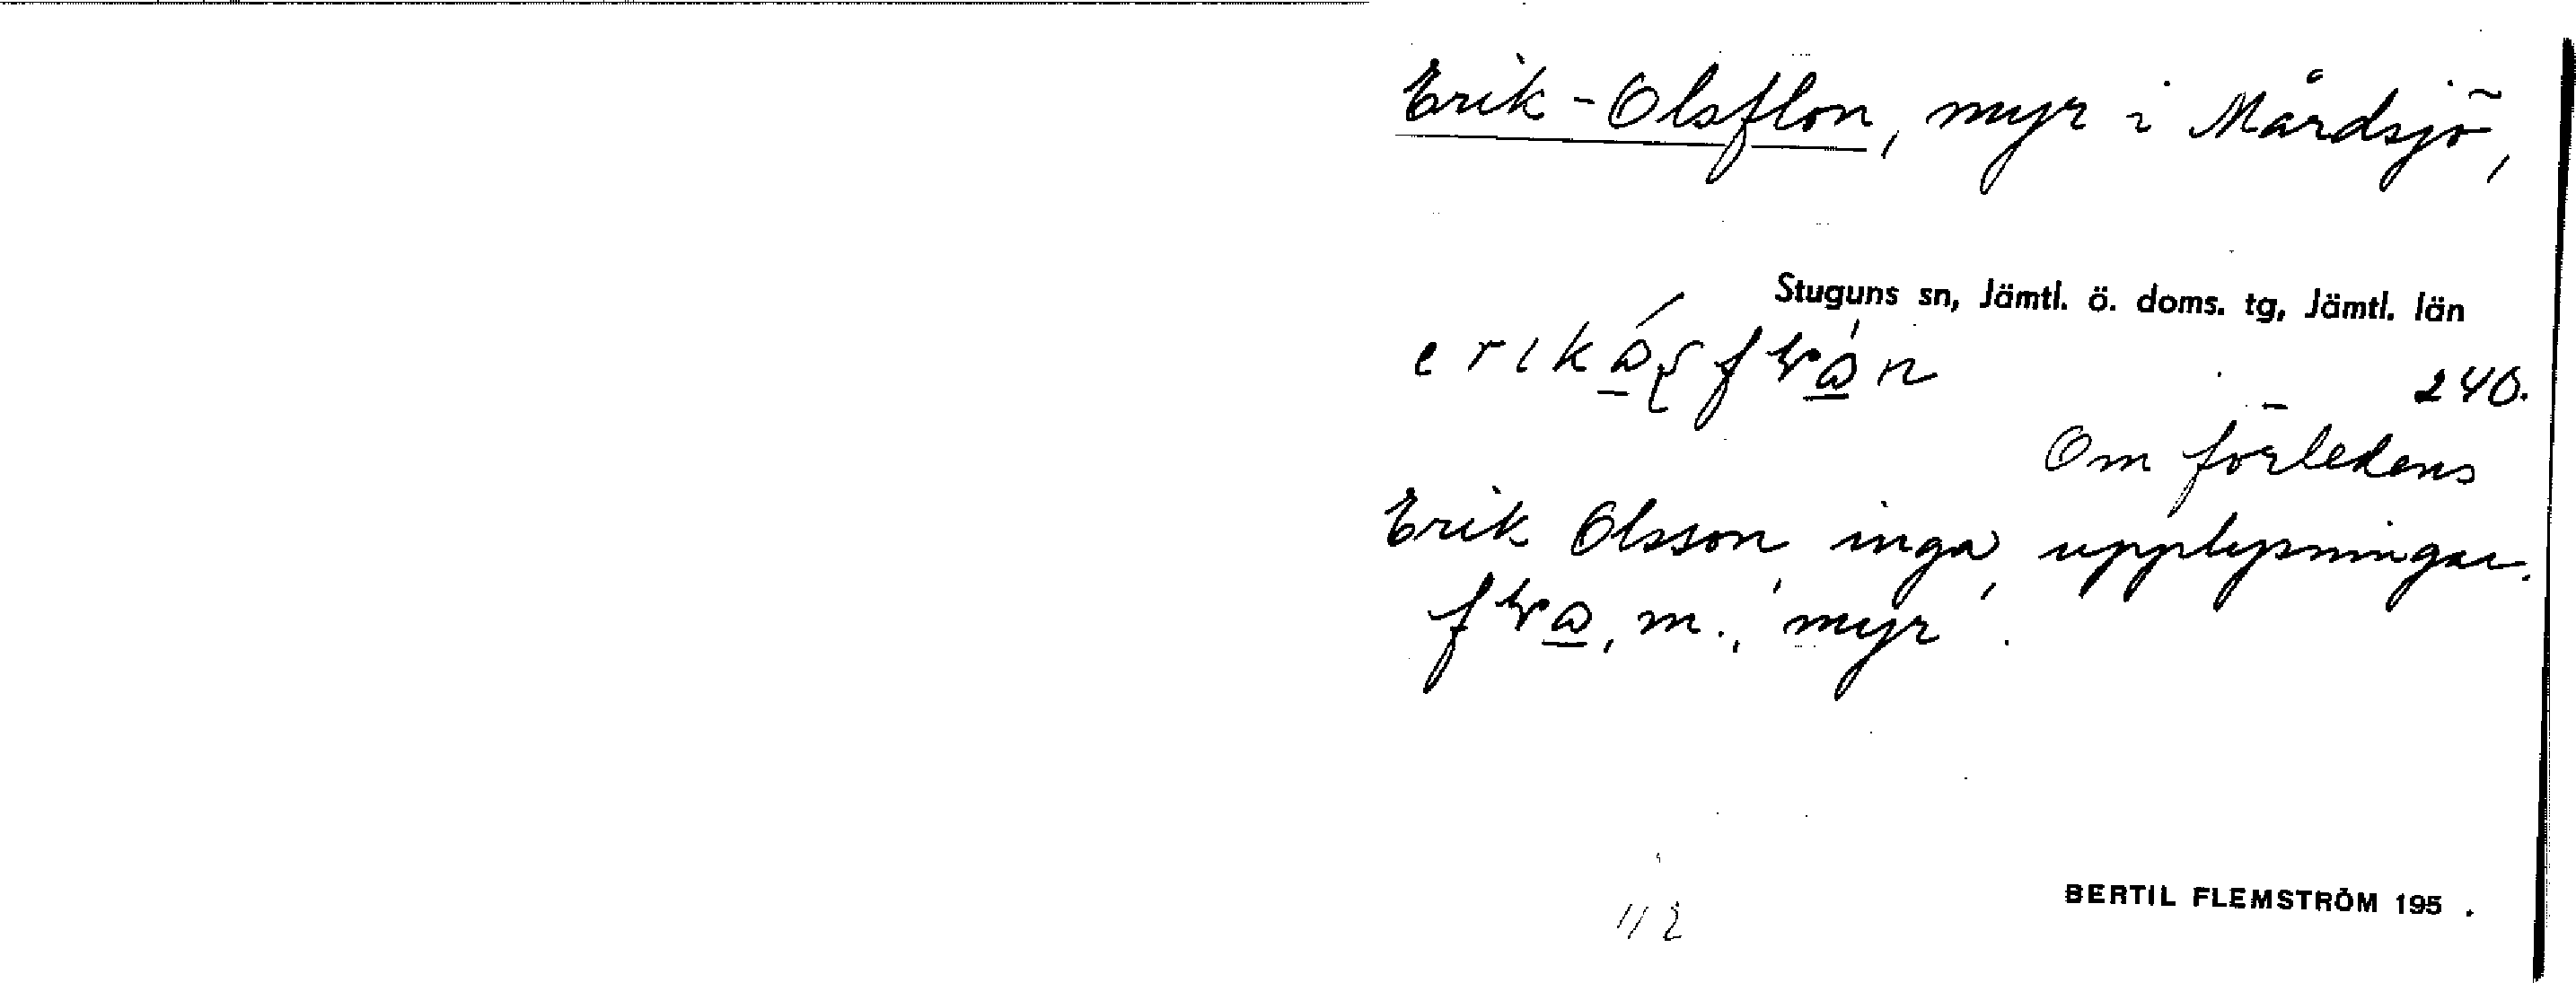 Erik-Olsflon, myr i Mårdsjö,
Stuguns sn, Jämtl. ö. doms. tg, Jämtl. län
240.
Om förledens
Erik Olsson inga upplysningar.
m., myr.
BERTIL FLEMSTRÖM 195 .
112